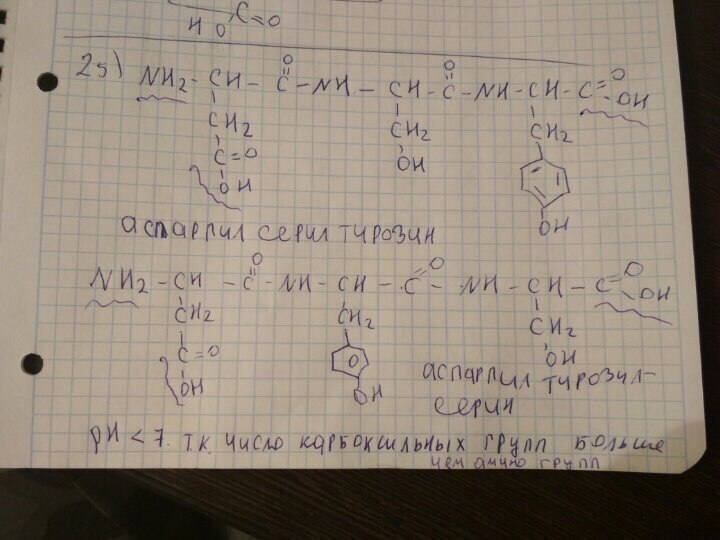 C=O
HO
25) NH2 - CH - C - NH - CH - C - NH - CH - C = O
O O OH
CH2 CH2 CH2
C=O OH
OH
OH
аспарпил серил тирозин
O O O
NH2 - CH - C - NH - CH - C - NH - CH - C OH
CH2 CH2 CH2
C=O O OH
OH OH
аспарпил тирозил-
серин
pH < 7. т.к. число карбоксильных групп больше
чем амино групп